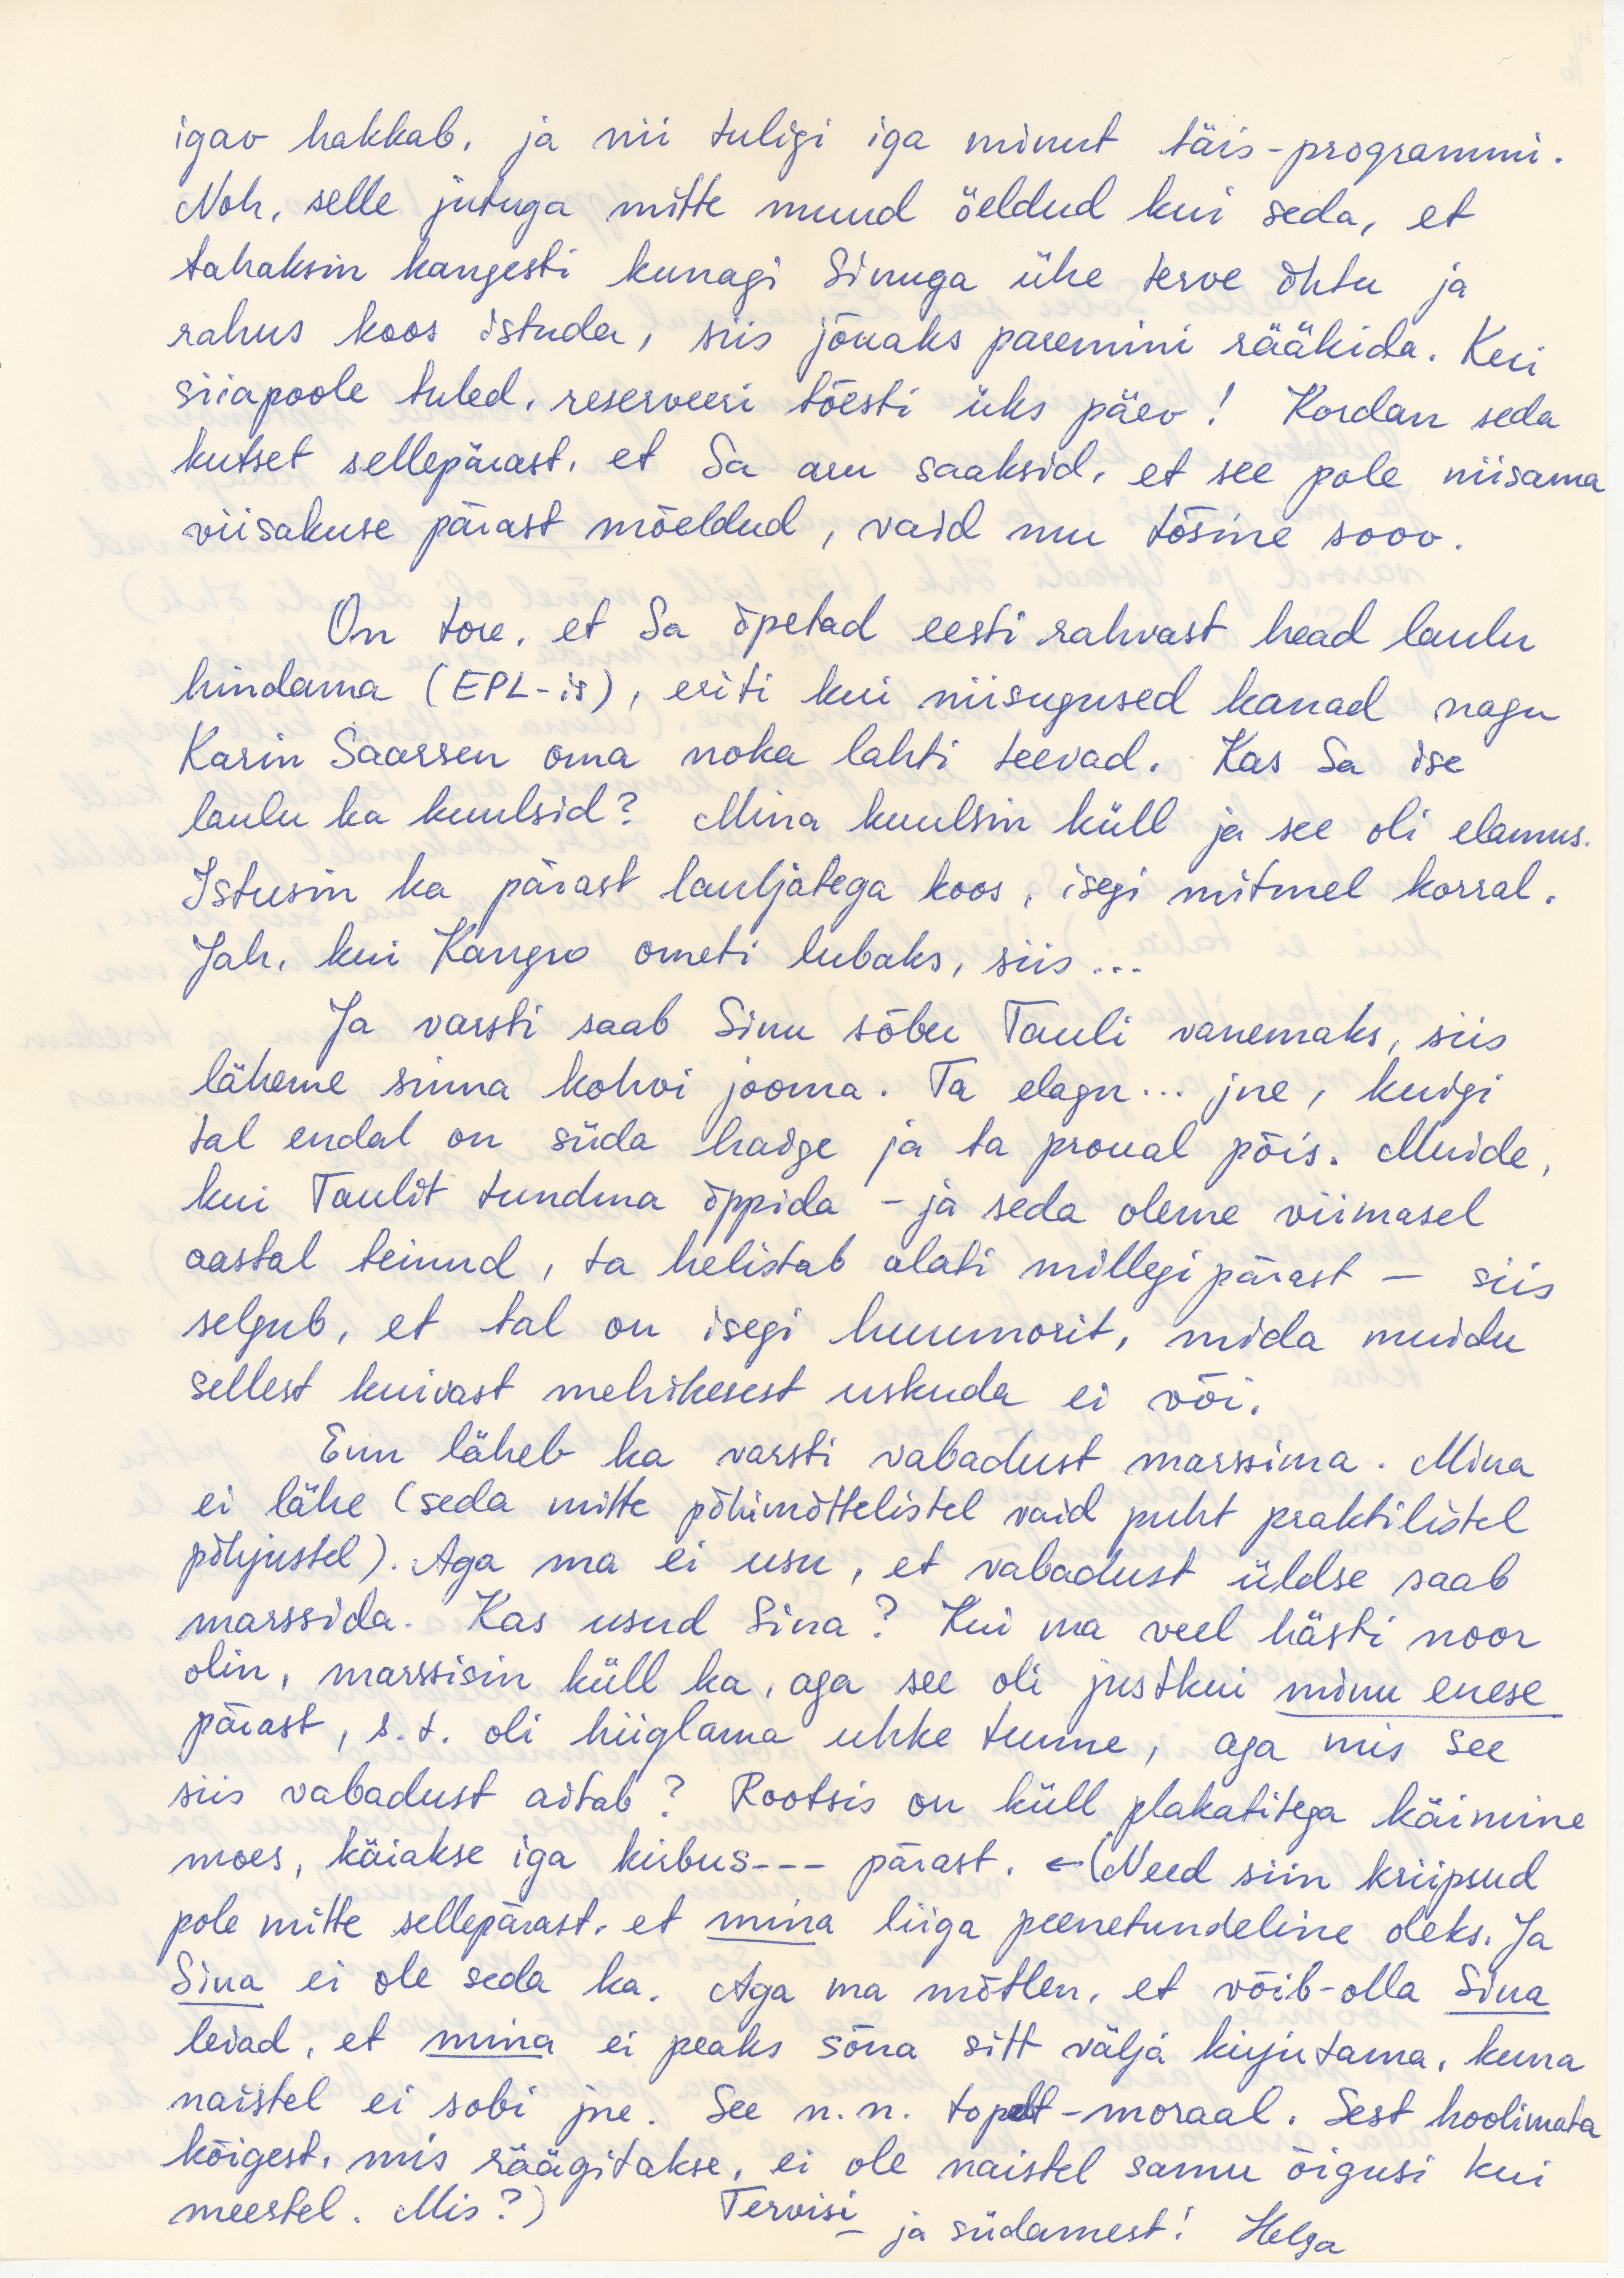 igav hakkab, ja nii tuligi iga minut täis-programmi.
Noh, selle jutuga mitte muud öeldud kui seda, et
tahaksin kangesti kunagi Sinuga ühe terve õhtu ja
rahus koos istuda, siis jõuaks paremini rääkida. Kui
siiapoole tuled, reserveeri tõesti üks päev! Kordan seda
kutset sellepärast, et Sa aru saaksid, et see pole niisama
viisakuse pärast mõeldud, vaid mu tõsine soov.
On tore, et Sa õpetad eesti rahvast head laulu
hindama (EPL-is), eriti kui niisugused kanad nagu
Karin Saarsen oma noka lahti teevad. Kas Sa ise
laulu ka kuulsid? Mina kuulsin küll ja see oli elamus.
Istusin ka pärast lauljatega koos, isegi mitmel korral.
Jah, kui Kangro ometi lubaks, siis...
Ja varsti saab Sinu sõbu Tauli vanemaks, siis
läheme sinna kohvi jooma. Ta elagu... jne, kuigi
tal endal on süda haige ja ta proual põis. Muide,
kui Taulit tundma õppida - ja seda oleme viimasel
aastal teinud, ta helistab alati millegi pärast - siis
selgub, et tal on isegi huumorit, mida muidu
sellest kuivast mehikesest uskuda ei või.
Enn läheb ka varsti vabadust marssima. Mina
ei lähe (seda mitte põhimõttelistel vaid puht praktilistel
põhjustel). Aga ma ei usu, et vabadust üldse saab
marssida. Kas usud Sina? Kui ma veel hästi noor
olin, marssisin küll ka, aga see oli justkui minu enese
pärast, s.t. oli hiiglama uhke tunne, aga mis see
siis vabadust aitab? Rootsis on küll plakatitega käimine
moes, käiakse iga kirbus--- pärast. ←(Need siin kriipsud
pole mitte sellepärast, et mina liiga peenetundeline oleks. Ja
Sina ei ole seda ka. Aga ma mõtlen, et võib-olla Sina
leiad, et mina ei peaks sõna sitt välja kirjutama, kuna
naistel ei sobi jne. See n.n. topelt-moraal. Sest hoolimata
kõigest, mis räägitakse, ei ole naistel samu õigusi kui
meestel. Mis?) Tervisi
- ja südamest! Helga